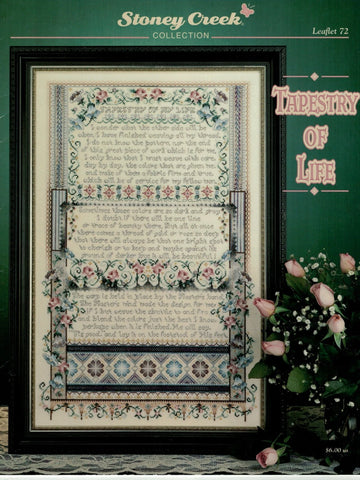 Stoney Creek
COLLECTION
Leaflet 72
TAPESTRY
OF
LIFE
TAPESTRY OF MY LIFE
I wonder what the other side will be
when I have finished weaving all my thread.
I do not know the pattern nor the end
of this great piece of work which is for me.
I only know that I must weave with care,
day by day, the colors that are given me
and make of them a fabric firm and true
which will be of service for my fellow man.
Sometimes those colors are so dark and gray
I doubt if there will be one line
or trace of beauty there. But all at once
there comes a thread of gold or rose so deep
that there will always be that one bright spot
to cherish or to keep and maybe against its
ground of darker hue it will be beautiful.
The warp is held in place by the Master's hand.
The Master's mind made the design for me
If I but weave the shuttle to and fro
and blend the colors just the best I know
perhaps when it is finished, He will say,
"Tis good," and lay it on the footstool of His feet.
$6.00 us